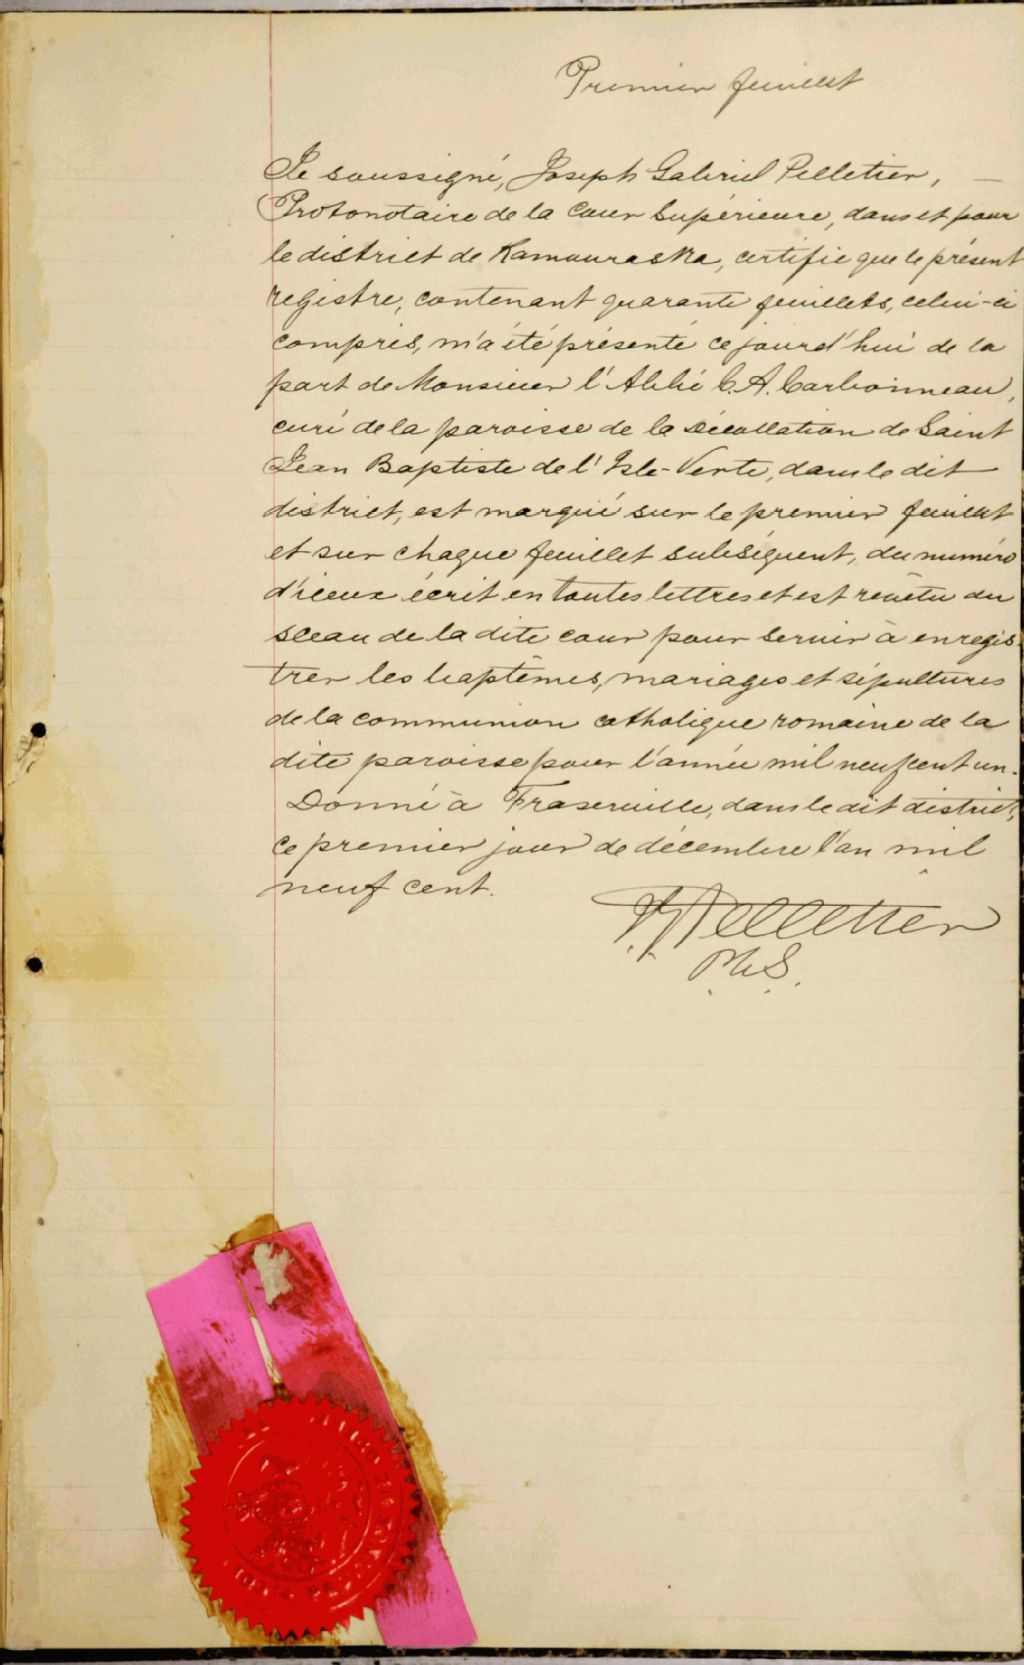 Premier feuillet
Je soussigné, Joseph Gabriel Pelletier,
Protonotaire de la Cour Supérieure, dans et pour
le district de Kamouraska, certifie que le présent
registre, contenant quarante feuillets, celui-ci
compris, m'a été présenté ce jourd'hui de la
part de Monsieur l'Abbé C. A. Carbonneau,
curé de la paroisse de la Décollation de Saint
Jean Baptiste de l'Isle-Verte, dans le dit
district, est marqué sur le premier feuillet
et sur chaque feuillet subséquent, du numéro
d'iceux écrit en toutes lettres et est revêtu du
sceau de la dite cour pour servir à enregis-
trer les baptêmes, mariages et sépultures
de la communion catholique romaine de la
dite paroisse pour l'année mil neuf cent un.
Donné à Fraserville, dans le dit district,
ce premier jour de décembre l'an mil
neuf cent.
J G Pelletier
P.C.S.